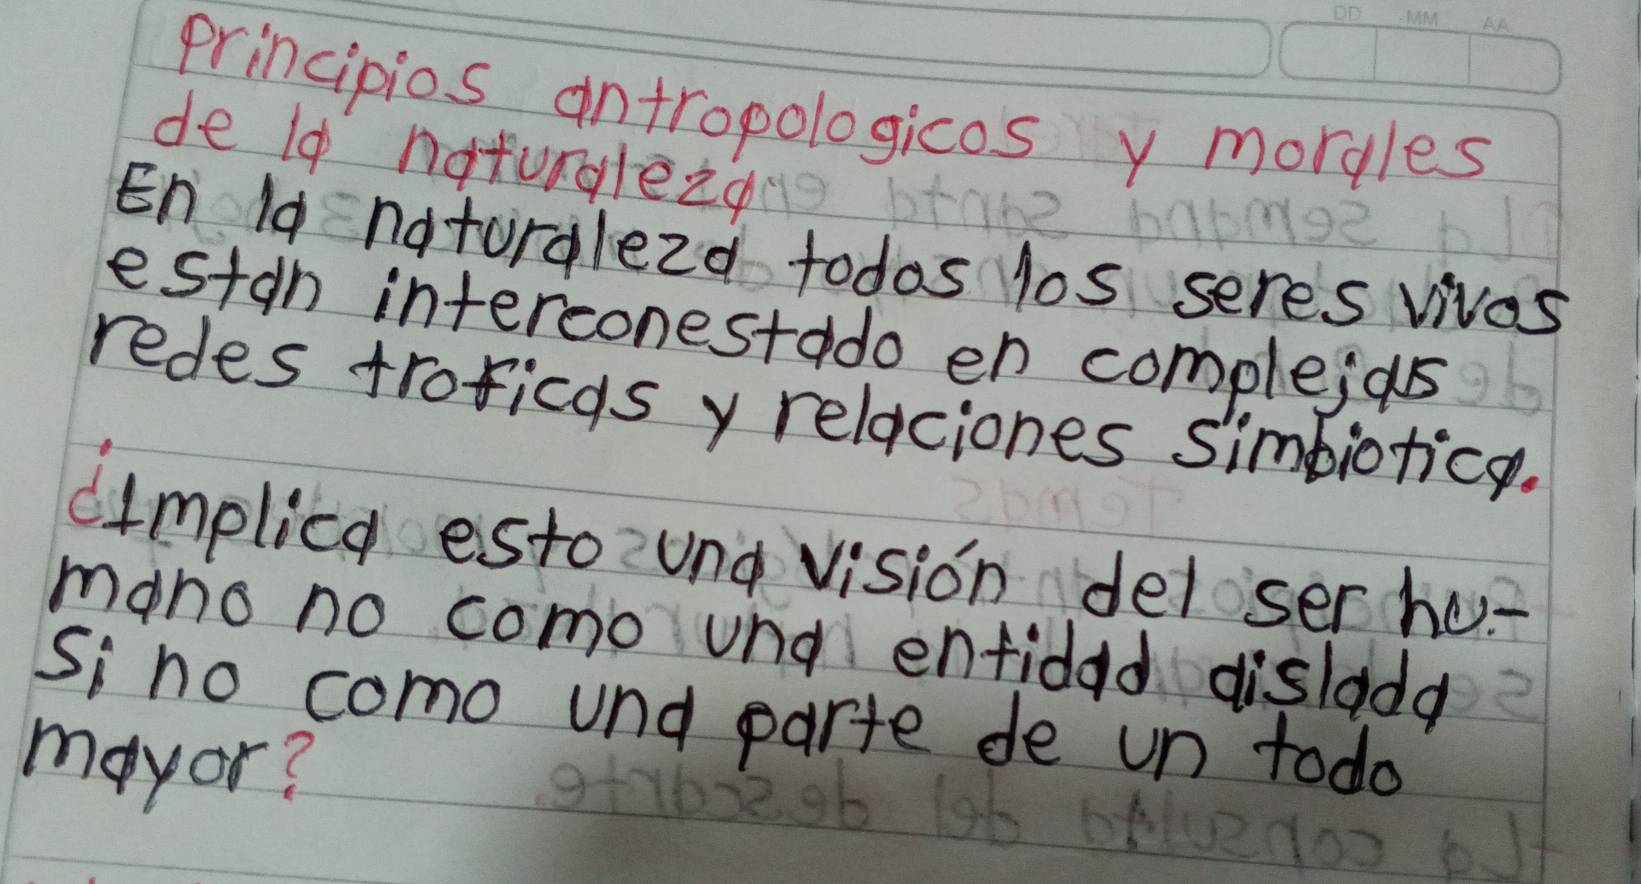 DD MM AA
Principios antropologicos y morales
de la naturaleza
En la naturaleza todos los seres vivos
estan interconestado en complejas
redes troficas y relaciones simbiotica.
¿Implica esto una visión del ser hu-
mano no como una entidad aislada
si no como una parte de un todo
mayor?